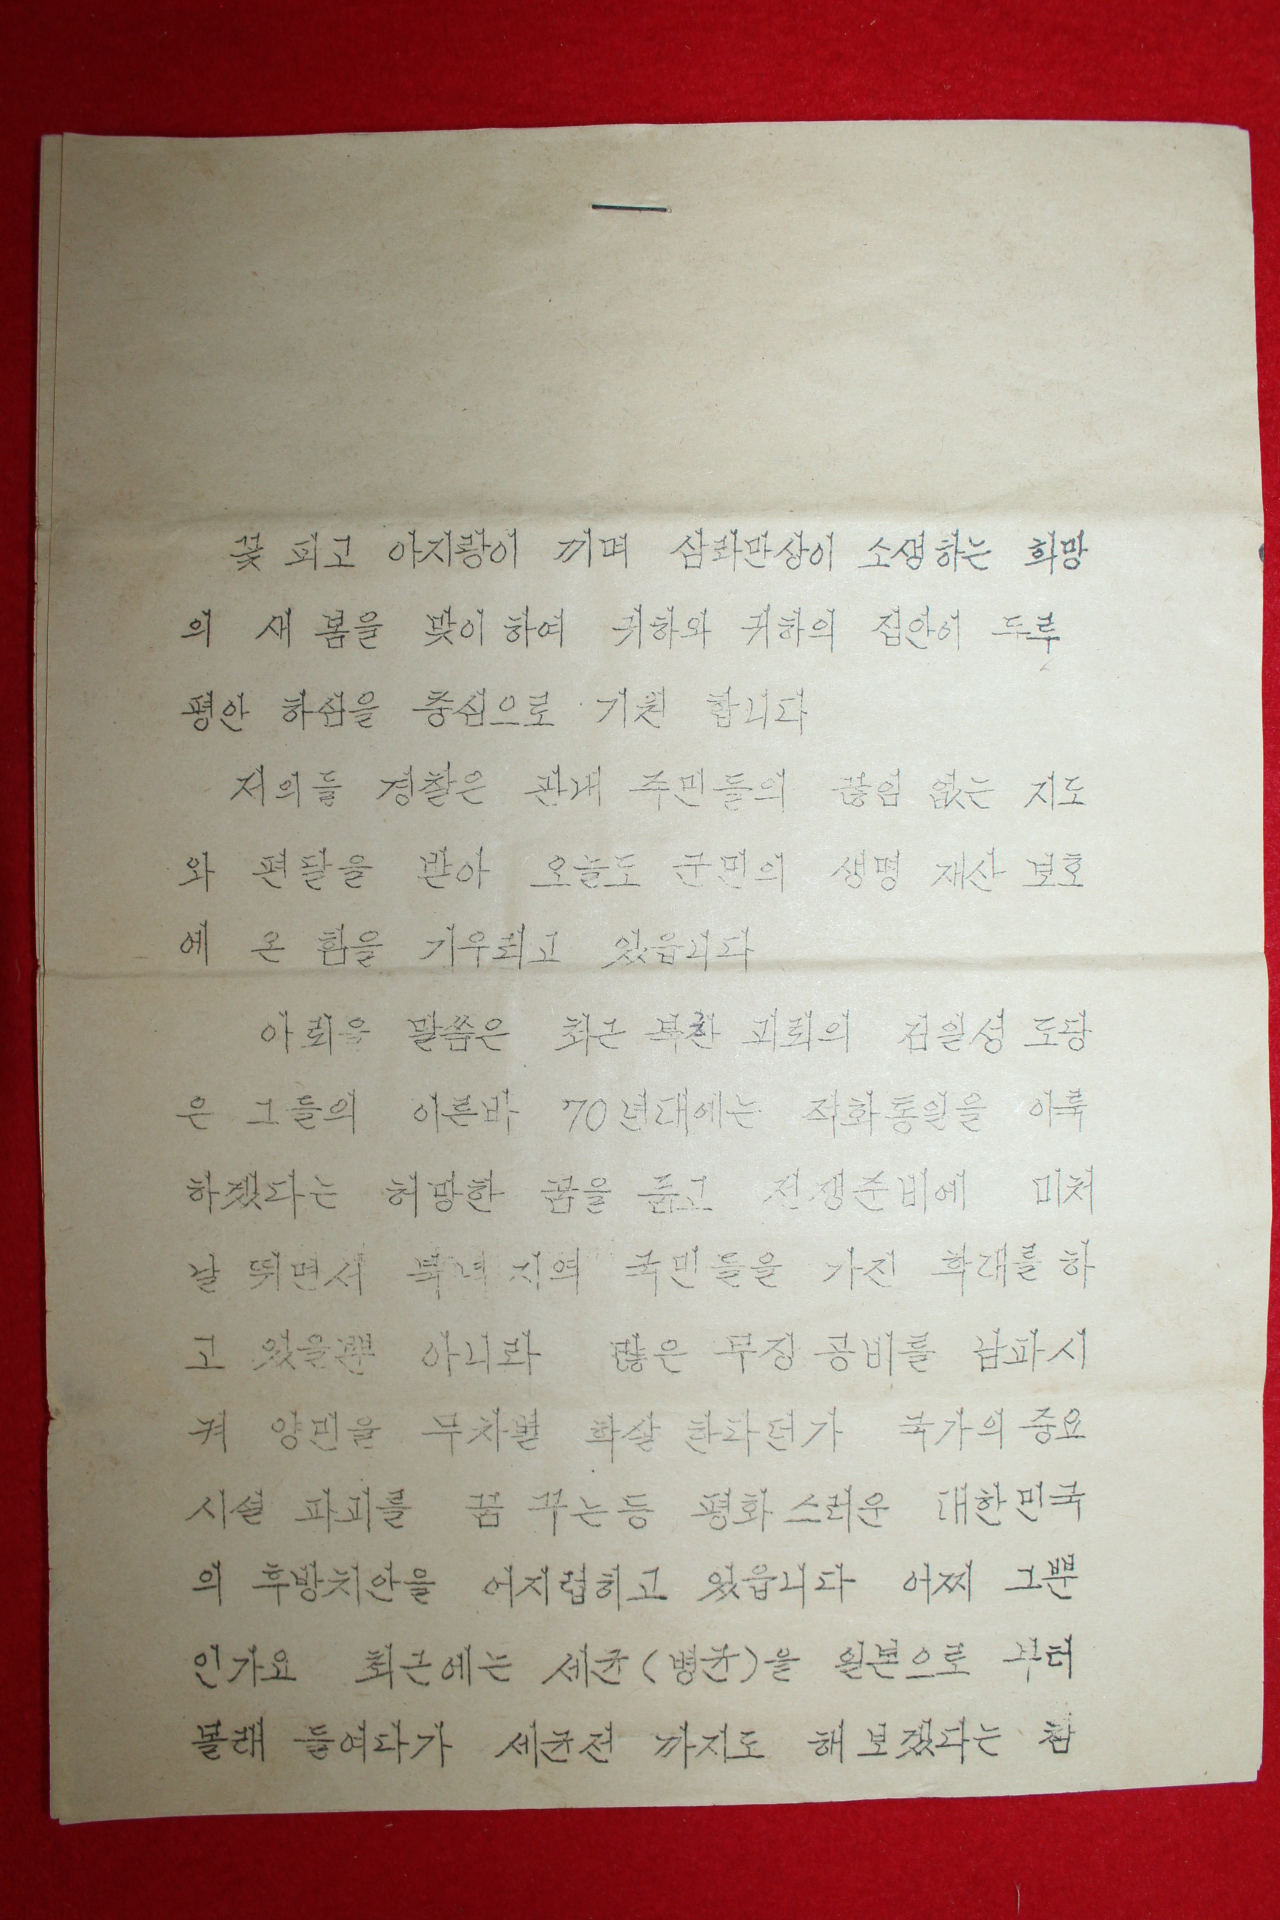 꽃 피고 아지랑이 끼며 삼라만상이 소생하는 희망
의 새 봄을 맞이 하여 귀하와 귀하의 집안이 두루
평안 하심을 충심으로 기원 합니다
저의들 경찰은 관내 주민들의 끊임 없는 지도
와 편달을 받아 오늘도 군민의 생명 재산 보호
에 온 힘을 기우리고 있읍니다
아뢰올 말씀은 최근 북한 괴뢰의 김일성 도당
은 그들의 이른바 70년대에는 적화통일을 이룩
하겠다는 허망한 꿈을 품고 전쟁준비에 미처
날 뛰면서 북녘 지역 국민들을 가진 학대를 하
고 있을뿐 아니라 많은 무장 공비를 남파시
켜 양민을 무차별 학살 한다던가 국가의 중요
시설 파괴를 꿈 꾸는등 평화 스러운 대한민국
의 후방치안을 어지럽히고 있읍니다 어찌 그뿐
인가요 최근에는 세균(병균)을 일본으로 부터
몰래 들여다가 세균전 까지도 해 보겠다는 참